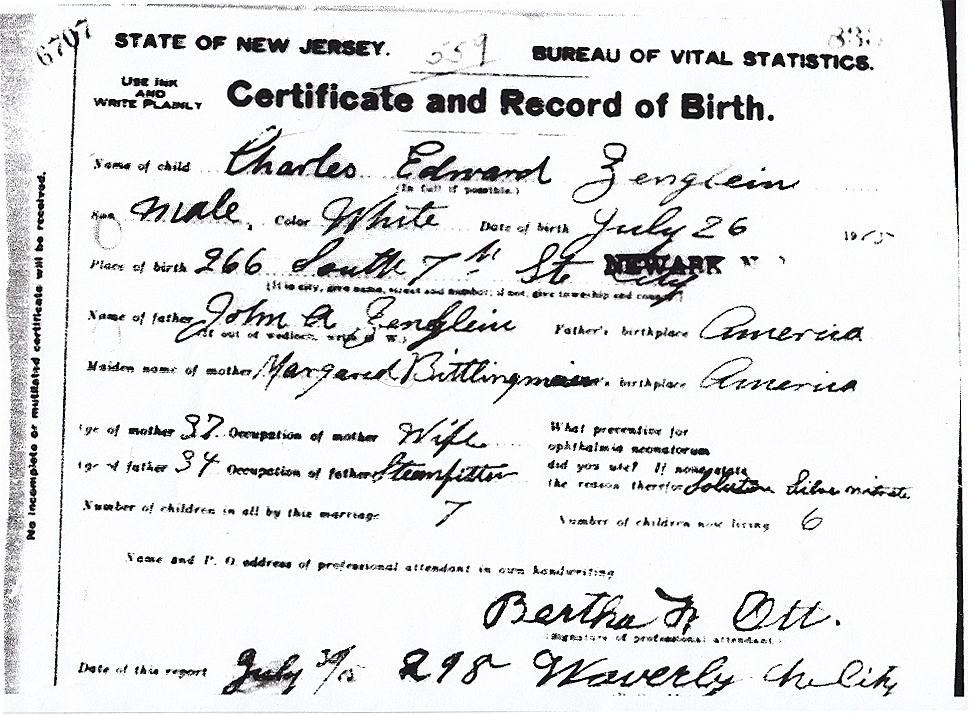 6707
STATE OF NEW JERSEY. 559 BUREAU OF VITAL STATISTICS.
USE INK AND WRITE PLAINLY
Certificate and Record of Birth.
No incomplete or mutilated certificate will be received.
Name of child Charles Edward Zenglein
(In full if possible.)
Sex Male, Color White Date of birth July 26 1915
Place of birth 266 South 7th St NEWARK N City
(If in city, give name, street and number; if not, give township and county)
Name of father John A Zenglein Father's birthplace America
(If out of wedlock, write O. W.)
Maiden name of mother Margared Bittlingmaier's birthplace America
Age of mother 37 Occupation of mother Wife
Age of father 34 Occupation of father Steamfitter
What preventive for
ophthalmia neonatorum
did you use? If none state
the reason therefor Solution Silve nitrate
Number of children in all by this marriage 7 Number of children now living 6
Name and P. O. address of professional attendant in own handwriting
Bertha Ott.
(Signature of professional attendant.)
Date of this report July 30/15 298 Waverly City